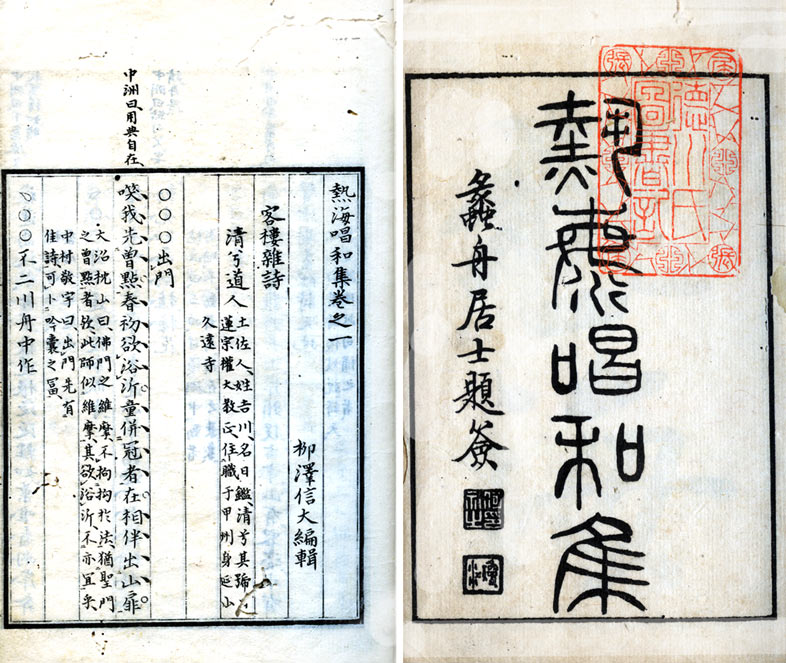 熱海唱和集
蠡舟居士題簽
德川氏
圖書記
熱海唱和集卷之一
柳澤信大編輯
客樓雜詩
清兮道人
土佐人、姓吉川、名日鑑清兮其號、
蓮宗權大教正、住職于甲州身延山
久遠寺
○○○出門
中洲曰、用典自在、
咲我先曾點春初欲浴沂童併冠者在相伴出山扉
大沼枕山曰、佛門之維摩、不拘拘於法、猶聖門
之曾點者歟、此師似維摩、其欲浴沂、不亦宜乎
中村敬宇曰、出門先有
佳詩可卜吟囊之富、
○○○不二川舟中作